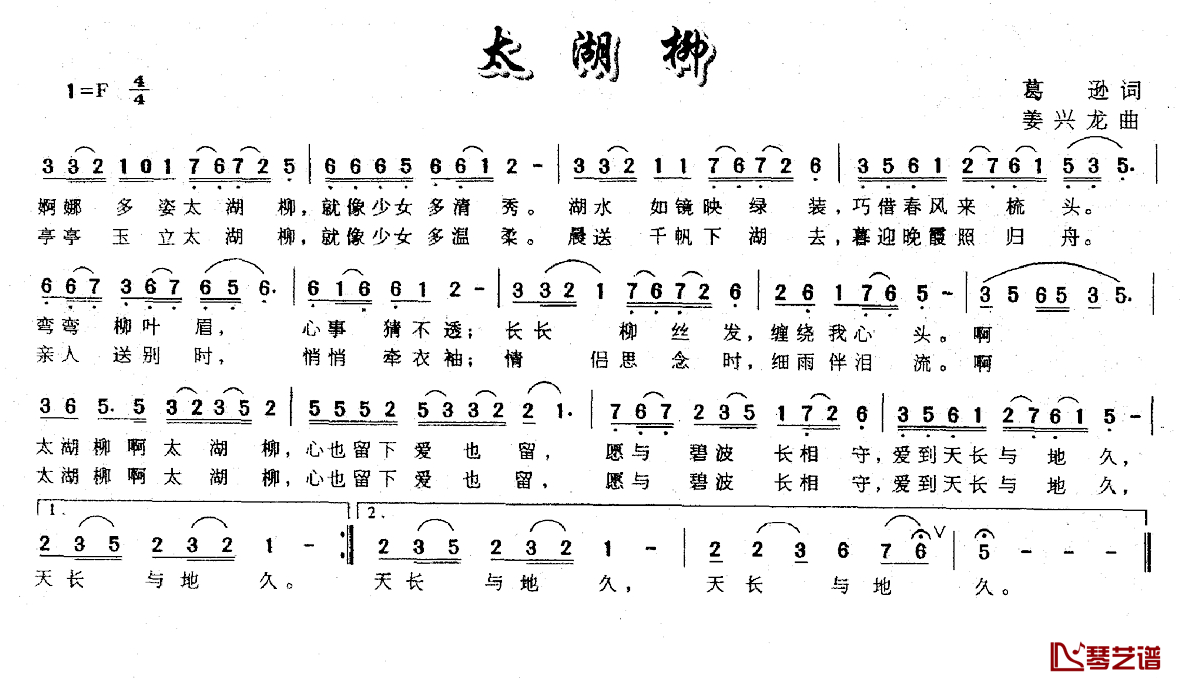 太湖柳
1=F 4/4
葛逊词
姜兴龙曲
3 3 2 1 0 1 7 6 7 2 5 | 6 6 6 5 6 6 1 2 - | 3 3 2 1 1 7 6 7 2 6 | 3 5 6 1 2 7 6 1 5 3 5. |
婀娜 多姿太湖柳,就像少女多清秀。湖水 如镜映绿装,巧借春风来梳头。
亭亭 玉立太湖柳,就像少女多温柔。晨送 千帆下湖去,暮迎晚霞照归舟。
6 6 7 3 6 7 6 5 6. | 6 1 6 6 1 2 - | 3 3 2 1 7 6 7 2 6 | 2 6 1 7 6 5 - | 3 5 6 5 3 5. |
弯弯 柳叶眉, 心事 猜不透;长长 柳丝发,缠绕我心头。啊
亲人 送别时, 悄悄 牵衣袖;情 侣思念时,细雨伴泪流。啊
3 6 5. 5 3 2 3 5 2 | 5 5 5 2 5 3 3 2 2 1. | 7 6 7 2 3 5 1 7 2 6 | 3 5 6 1 2 7 6 1 5 - |
太湖柳啊太湖柳,心也留下爱也留, 愿与 碧波长相守,爱到天长与地久,
太湖柳啊太湖柳,心也留下爱也留, 愿与 碧波长相守,爱到天长与地久,
1. 2.
2 3 5 2 3 2 1 - :| 2 3 5 2 3 2 1 - | 2 2 3 6 7 6 V | 5 - - - |
天长 与地久。 天长 与地久, 天长 与地久。
琴艺谱